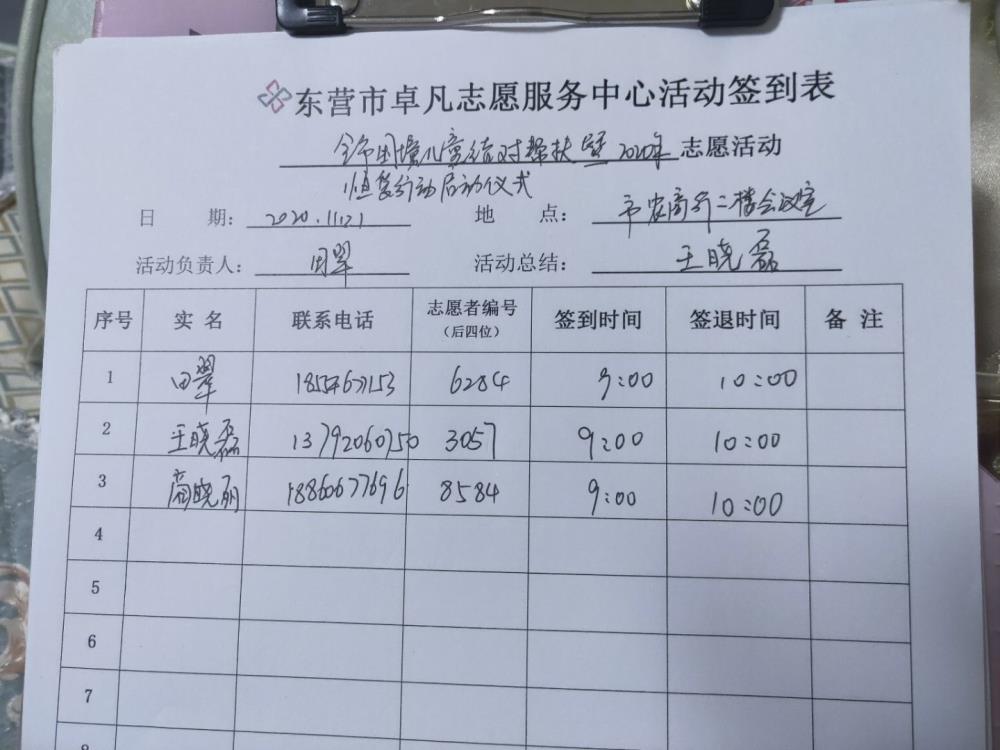 东营市卓凡志愿服务中心活动签到表
全市困境儿童结对帮扶暨2020年 志愿活动
恒爱行动启动仪式
日 期： 2020.11.21 地 点： 市农商行二楼会议室
活动负责人： 田翠 活动总结： 王晓磊
序号 实 名 联系电话 志愿者编号（后四位） 签到时间 签退时间 备 注
1 田翠 6284 9:00 10:00
2 王晓磊 13792060750 3057 9:00 10:00
3 晓丽 18860677696 8584 9:00 10:00
4
5
6
7
8